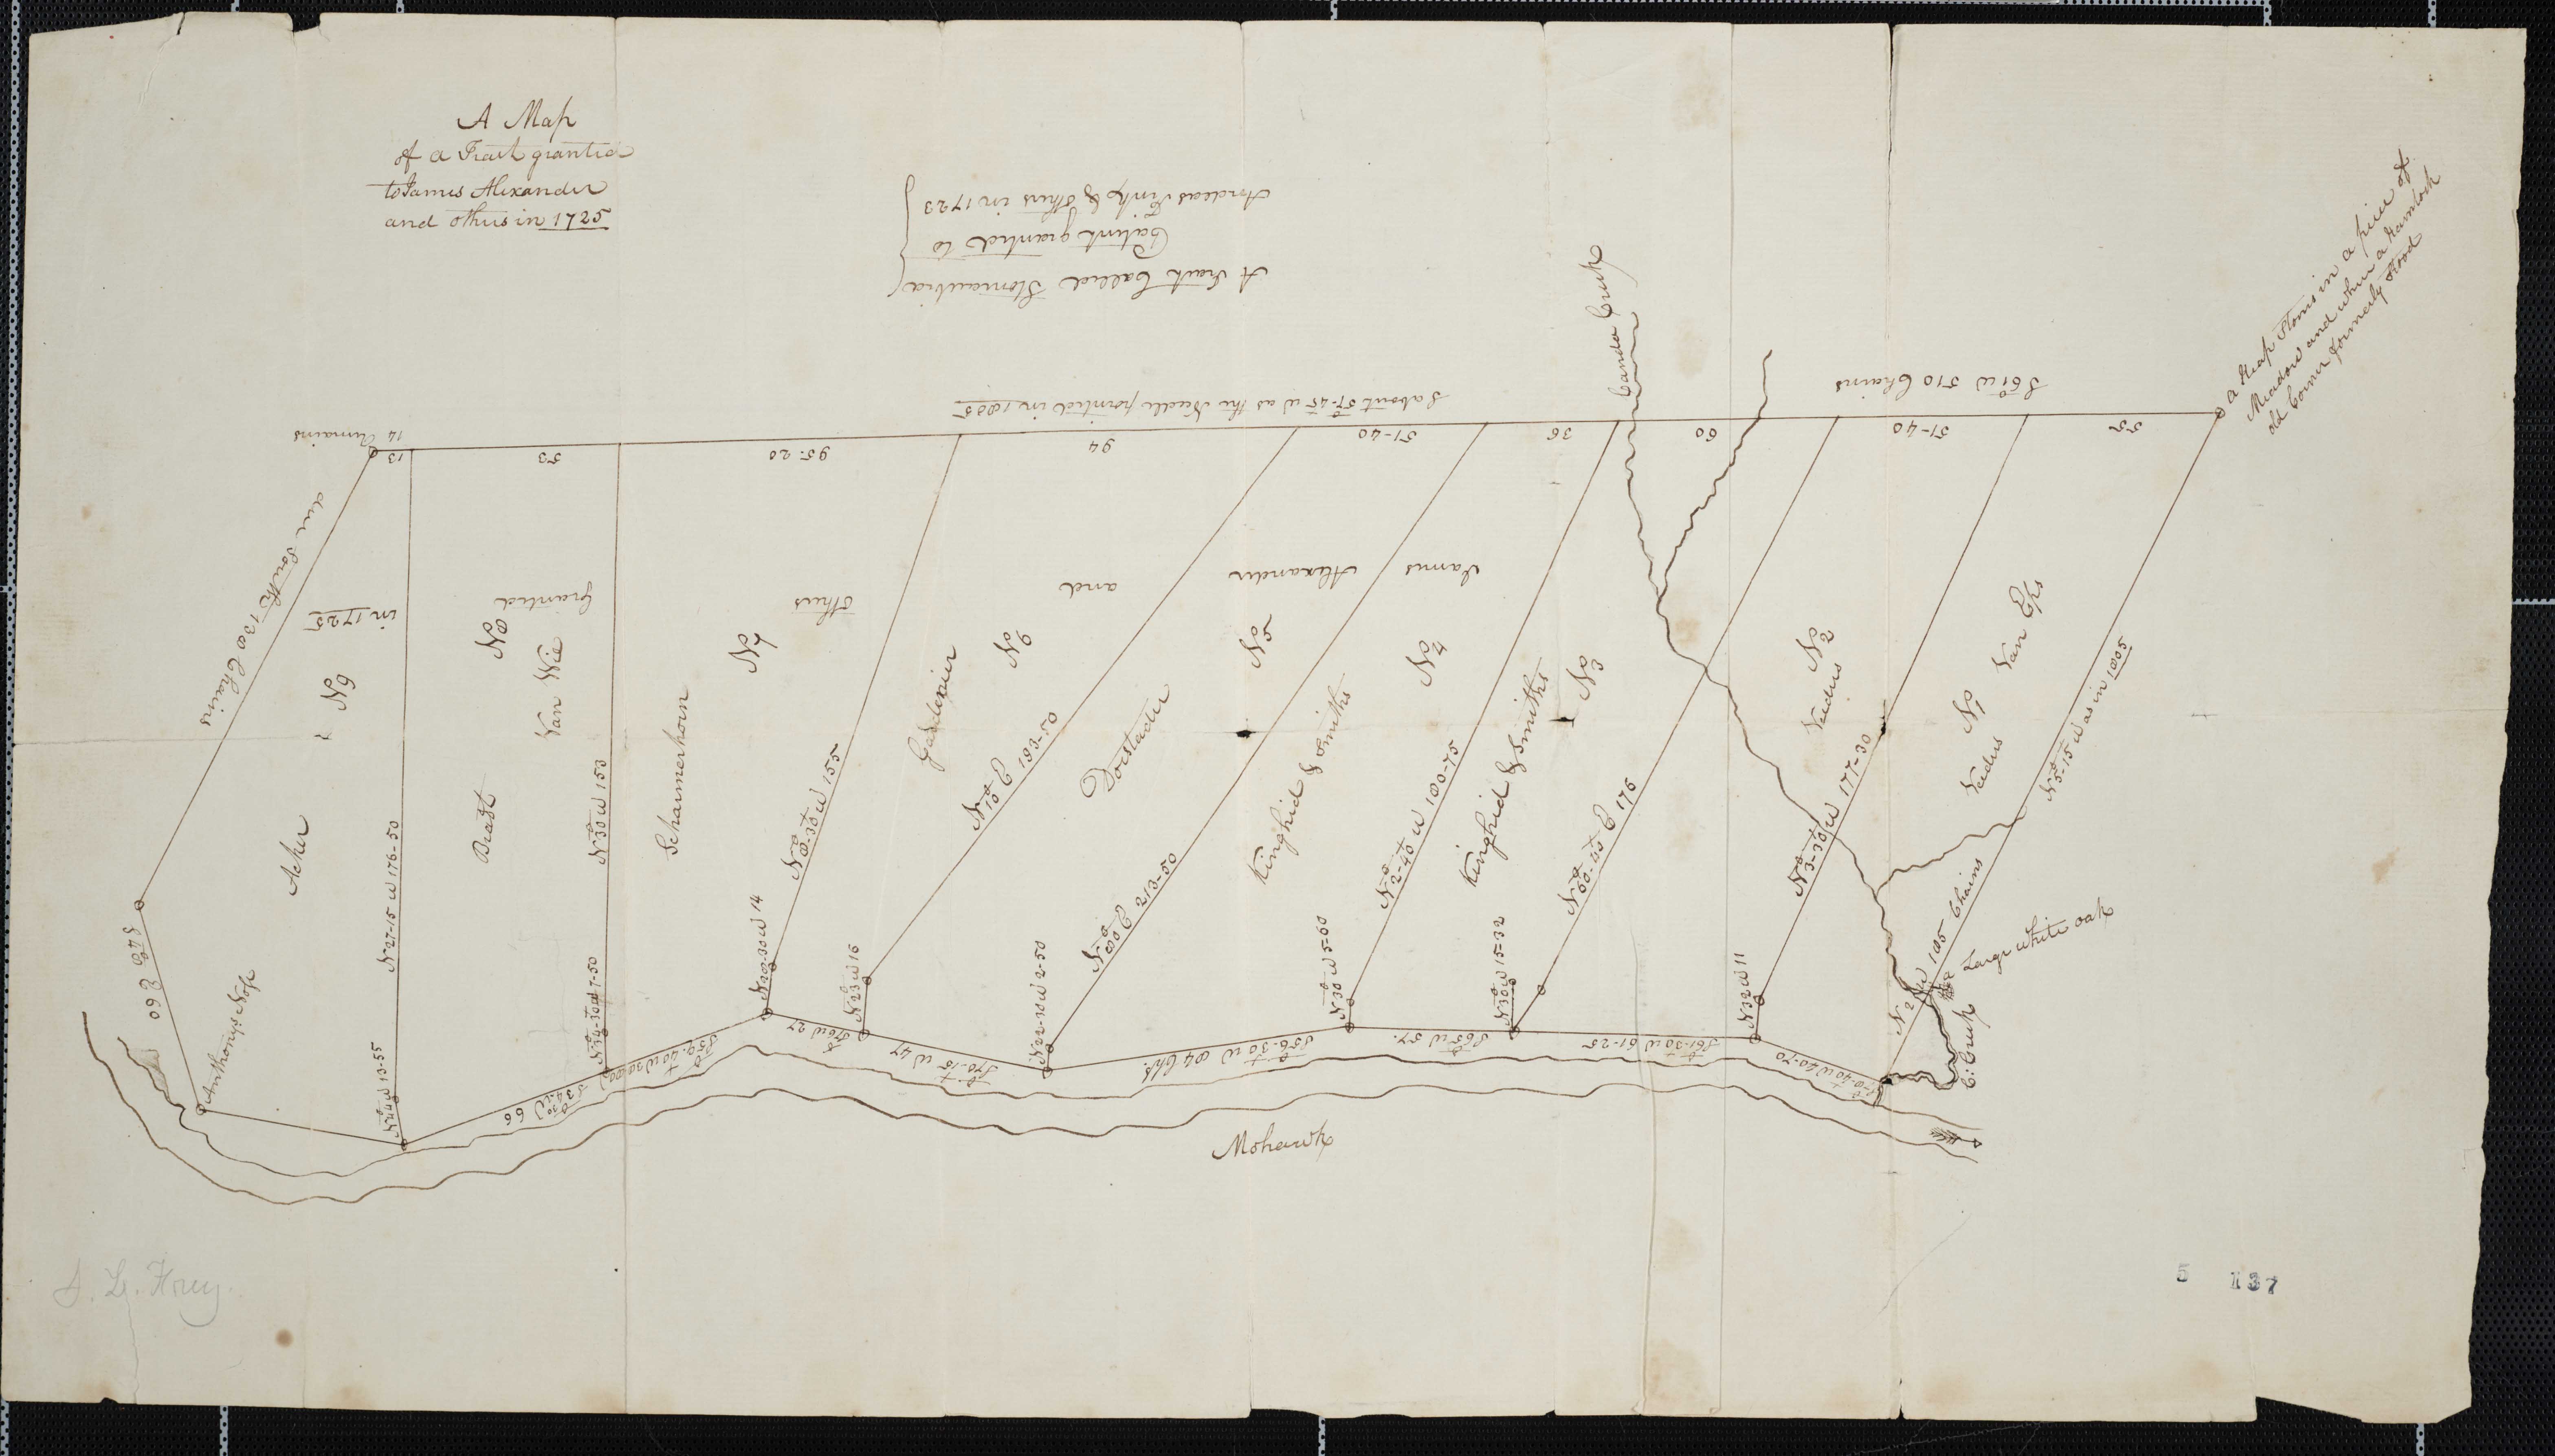 A Map
of a Tract granted
to James Alexander
and others in 1725
A Tract Called Stoniarubia
Patent granted to
Andreas Fink & others in 1723
Canada Creek
a Heap Stones in a piece of
Meadow and where a Hemlock
old Corner formerly Stood
S 61° W 510 Chains
S about 57°-45' W as the Needle pointed in 1805
55
51-40
60
36
51-40
94
95-20
53
13
14 Remains
due South 130 Chains
James
Alexander
and
others
Granted
in 1725
No 9
Acker
No 8
Van Nie
Bratt
No 7
Scharmerhorn
No 6
Gardenier
Docstader
No 5
Kinghid & Smiths
No 4
Kinghid & Smiths
No 3
No 2
Veeders
No 1
Veeders
Van Eps
N 27-15 W 176-50
N 30° W 153
N 8°-30' W 155
N 10° E 193-50
N 8° E 213-50
N 2°-40' W 180-75
E 176
N 3°-30' W 177-30
N 5°-15' W as in 1805
N 2° W 185 Chains
a Large white oak
E: Creek
S 48° E 60
Anthonys Nose
N 24° W 13-55
7-50
N 22-30 W 14
N 23° W 16
N 22-10 W 2-50
N 30° W 5-60
N 30° W 15-32
N 32 W 11
S 34 W 66
S 59°-40' W 30-80
S 76° W 27
S 70°-15' W 47
S 56°-30' W 84 Chs.
S 65° W 57.
S 61°-30' W 61-25
W 40-70
Mohawk
S. L. Frey.
5 137